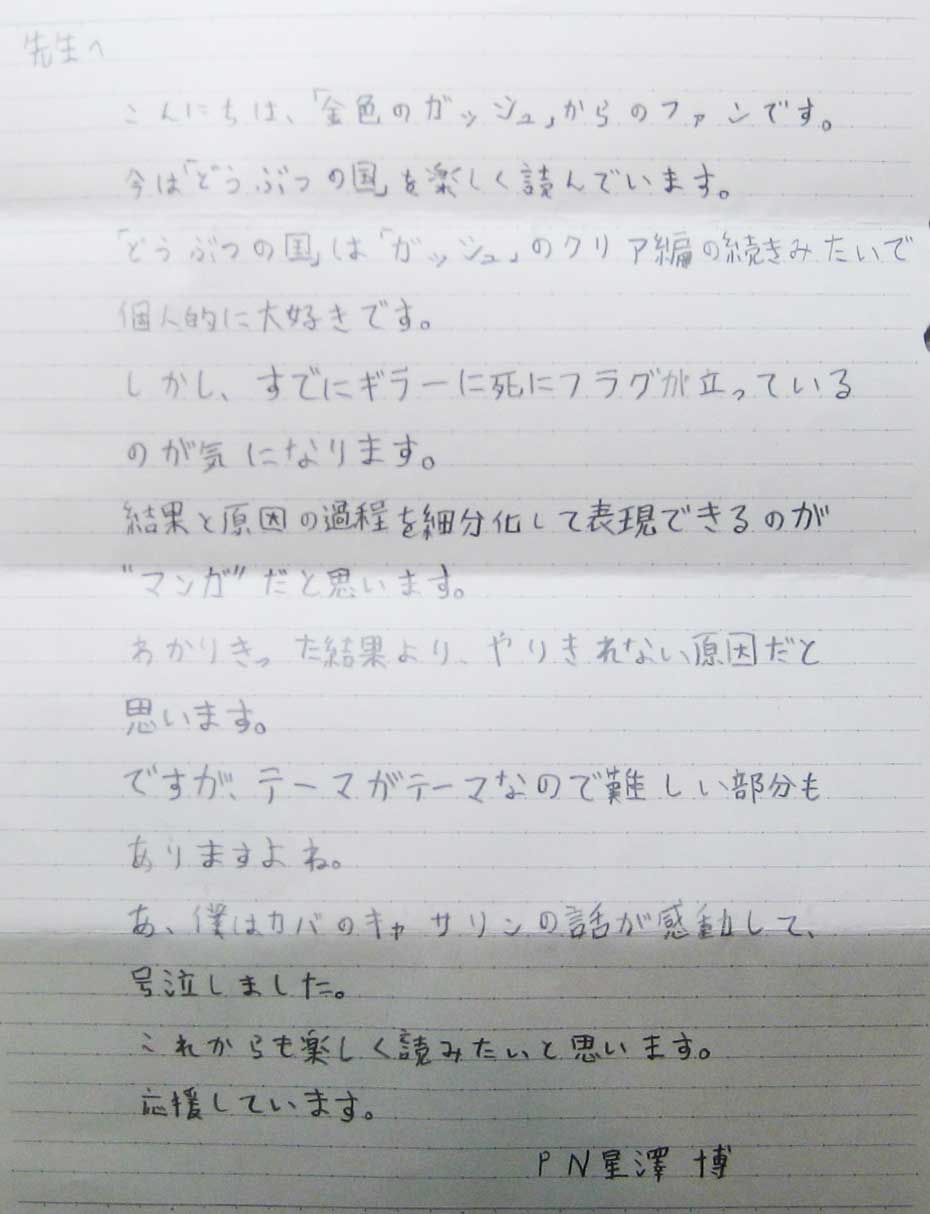 先生へ
こんにちは、「金色のガッシュ」からのファンです。
今は「どうぶつの国」を楽しく読んでいます。
「どうぶつの国」は「ガッシュ」のクリア編の続きみたいで
個人的に大好きです。
しかし、すでにギラーに死にフラグが立っている
のが気になります。
結果と原因の過程を細分化して表現できるのが
"マンガ"だと思います。
わかりきった結果より、やりきれない原因だと
思います。
ですが、テーマがテーマなので難しい部分も
ありますよね。
あ、僕はカバのキャサリンの話が感動して、
号泣しました。
これからも楽しく読みたいと思います。
応援しています。
PN星澤 博